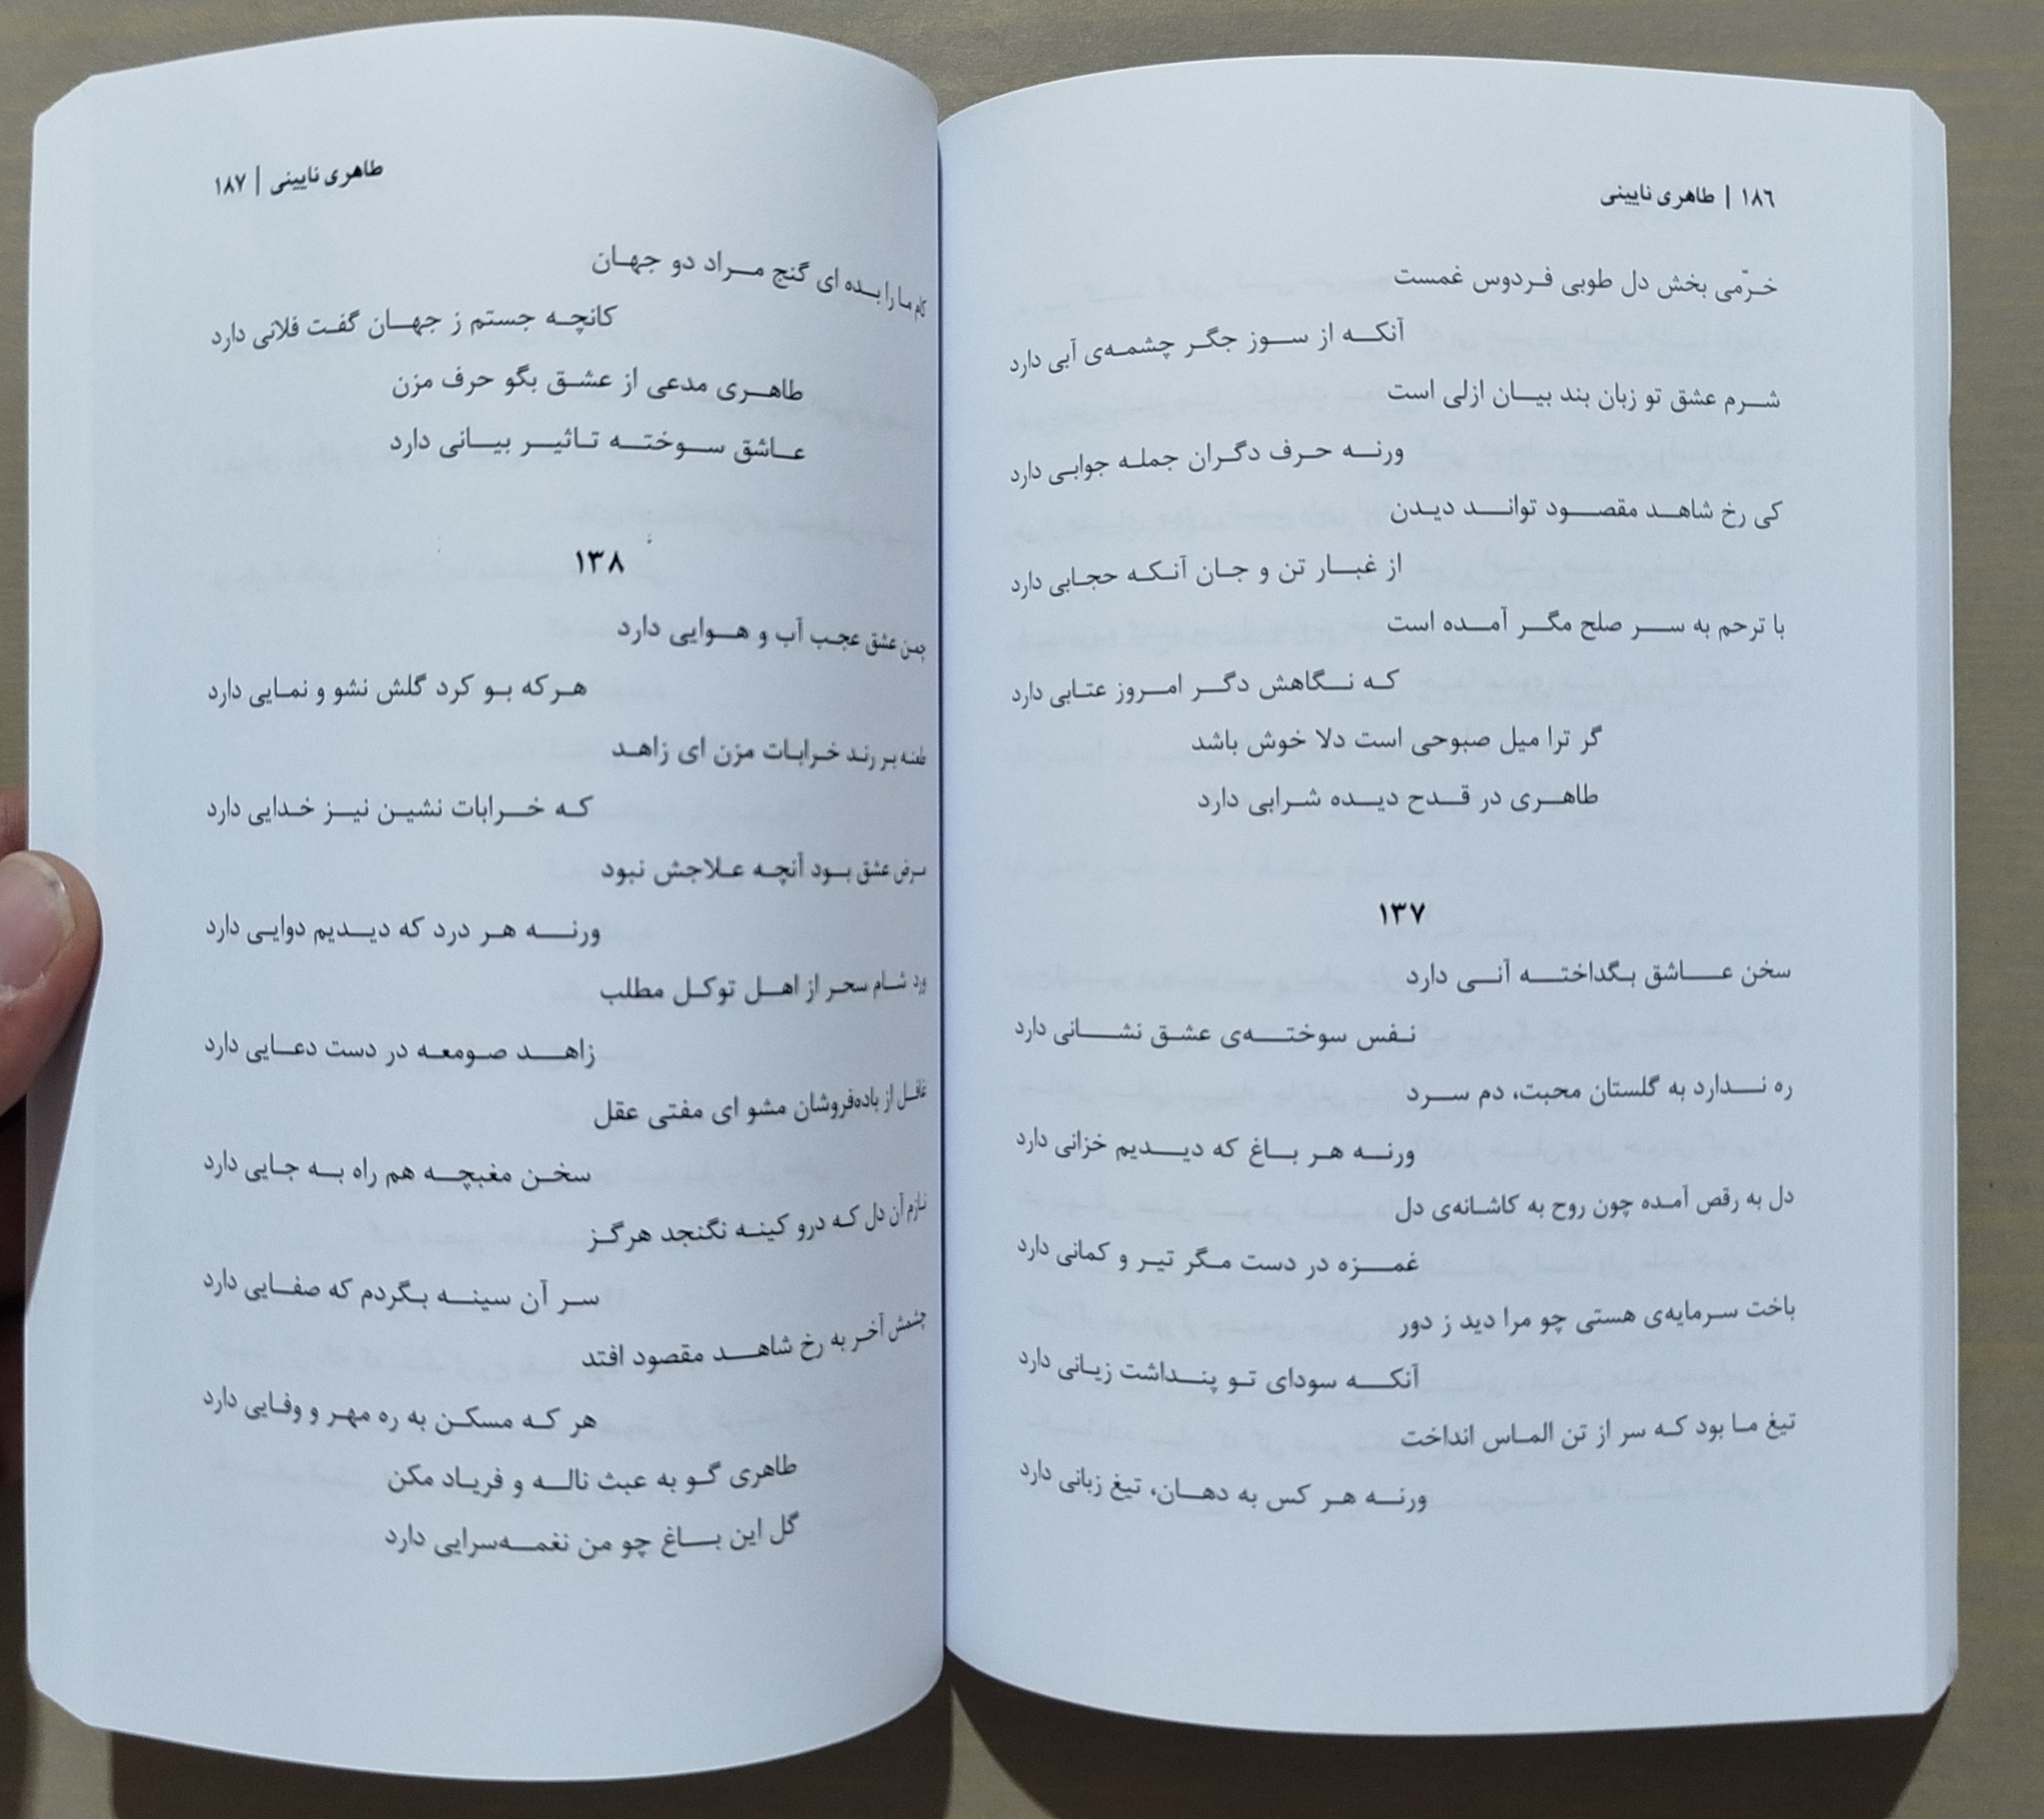 ١٨٦ | طاهری نایینی
خرّمی بخش دل طوبی فردوس غمست
آنکه از سوز جگر چشمه‌ی آبی دارد
شرم عشق تو زبان بند بیان ازلی است
ورنه حرف دگران جمله جوابی دارد
کی رخ شاهد مقصود تواند دیدن
از غبار تن و جان آنکه حجابی دارد
با ترحم به سر صلح مگر آمده است
که نگاهش دگر امروز عتابی دارد
گر ترا میل صبوحی است دلا خوش باشد
طاهری در قدح دیده شرابی دارد
١٣٧
سخن عاشق بگداخته آنی دارد
نفس سوخته‌ی عشق نشانی دارد
ره ندارد به گلستان محبت، دم سرد
ورنه هر باغ که دیدیم خزانی دارد
دل به رقص آمده چون روح به کاشانه‌ی دل
غمزه در دست مگر تیر و کمانی دارد
باخت سرمایه‌ی هستی چو مرا دید ز دور
آنکه سودای تو پنداشت زیانی دارد
تیغ ما بود که سر از تن الماس انداخت
ورنه هر کس به دهان، تیغ زبانی دارد
طاهری نایینی | ١٨٧
کام ما را بده ای گنج مراد دو جهان
کانچه جستم ز جهان گفت فلانی دارد
طاهری مدعی از عشق بگو حرف مزن
عاشق سوخته تاثیر بیانی دارد
١٣٨
چمن عشق عجب آب و هوایی دارد
هرکه بو کرد گلش نشو و نمایی دارد
طعنه بر رند خرابات مزن ای زاهد
که خرابات نشین نیز خدایی دارد
مرض عشق بود آنچه علاجش نبود
ورنه هر درد که دیدیم دوایی دارد
ورد شام سحر از اهل توکل مطلب
زاهد صومعه در دست دعایی دارد
غافل از باده‌فروشان مشو ای مفتی عقل
سخن مغبچه هم راه به جایی دارد
نازم آن دل که درو کینه نگنجد هرگز
سر آن سینه بگردم که صفایی دارد
چشمش آخر به رخ شاهد مقصود افتد
هر که مسکن به ره مهر و وفایی دارد
طاهری گو به عبث ناله و فریاد مکن
گل این باغ چو من نغمه‌سرایی دارد